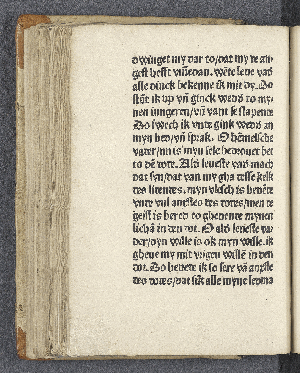 dwinget my dar to/dat my te an-
gest hefft vmevan. wēte leue vad
alle dinck bekenne ik mit dy. Do
stōt ik up vn̄ ginck wedd to my-
nen iungeren/vn̄ vant se slapente
Do ik vnde gink wedd an
myn bed/vn̄ sprak. O hēmelsche
vater/nu is myn sele bedrouet bet
to dē dode. Als leueste vad mach
dat syn/dat van my gha desse kelk
des lidendes. myn vlesch is
vnde vul anxstes des dodes/men de
geist is bered to gheuende mynen
lichā in den dot. O als leueste va-
der/dyn wille is ok myn wille. ik
gheue my mit vrigen willē in den
dot. Do beuede ik so sere vā angste
des dodes/dat alle myne ledma